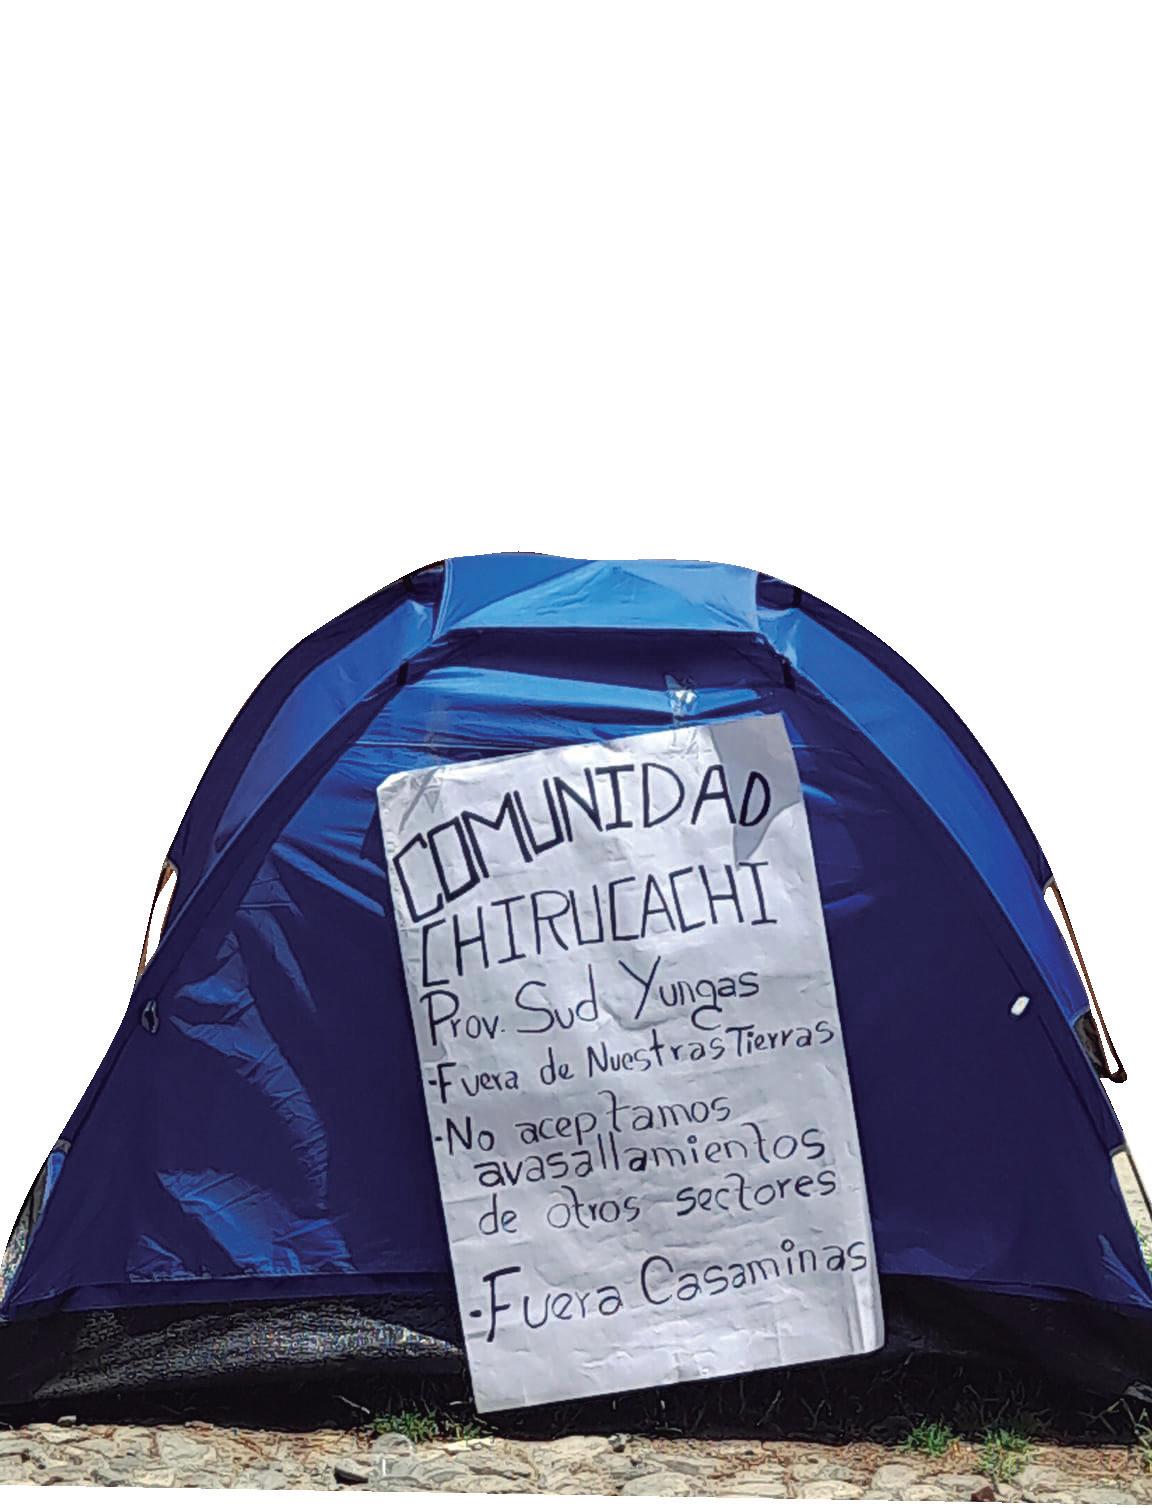 COMUNIDAD
CHIRUCACHI
Prov. Sud Yungas
-Fuera de Nuestras Tierras
-No aceptamos
avasallamientos
de otros sectores
-Fuera Casaminas